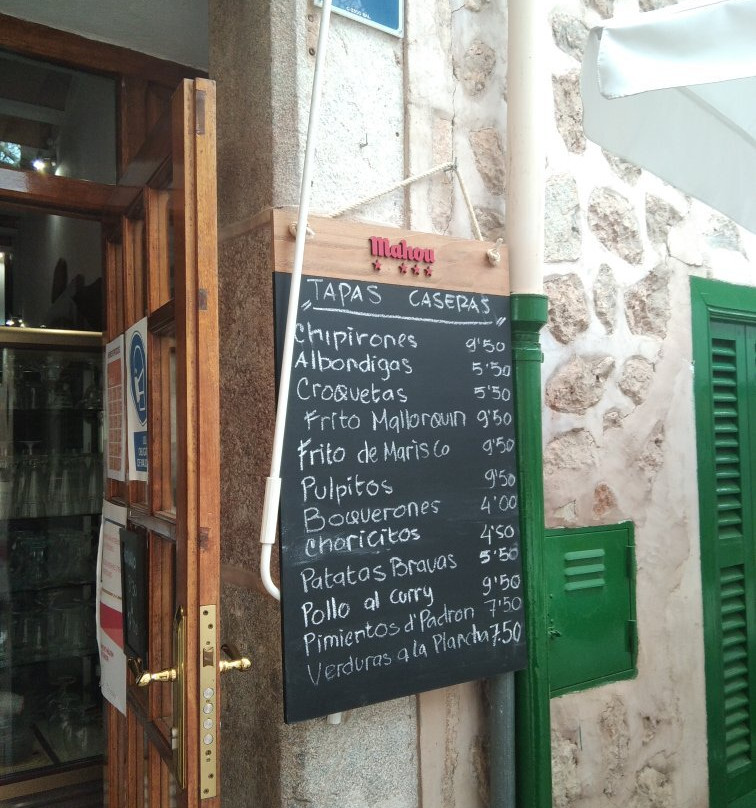 Mahou
TAPAS CASERAS
Chipirones 9'50
Albondigas 5'50
Croquetas 5'50
Frito Mallorquin 9'50
Frito de Marisco 9'50
Pulpitos 9'50
Boquerones 4'00
Choricitos 4'50
Patatas Bravas 5'50
Pollo al curry 9'50
Pimientos d'Padron 7'50
Verduras a la Plancha 7.50